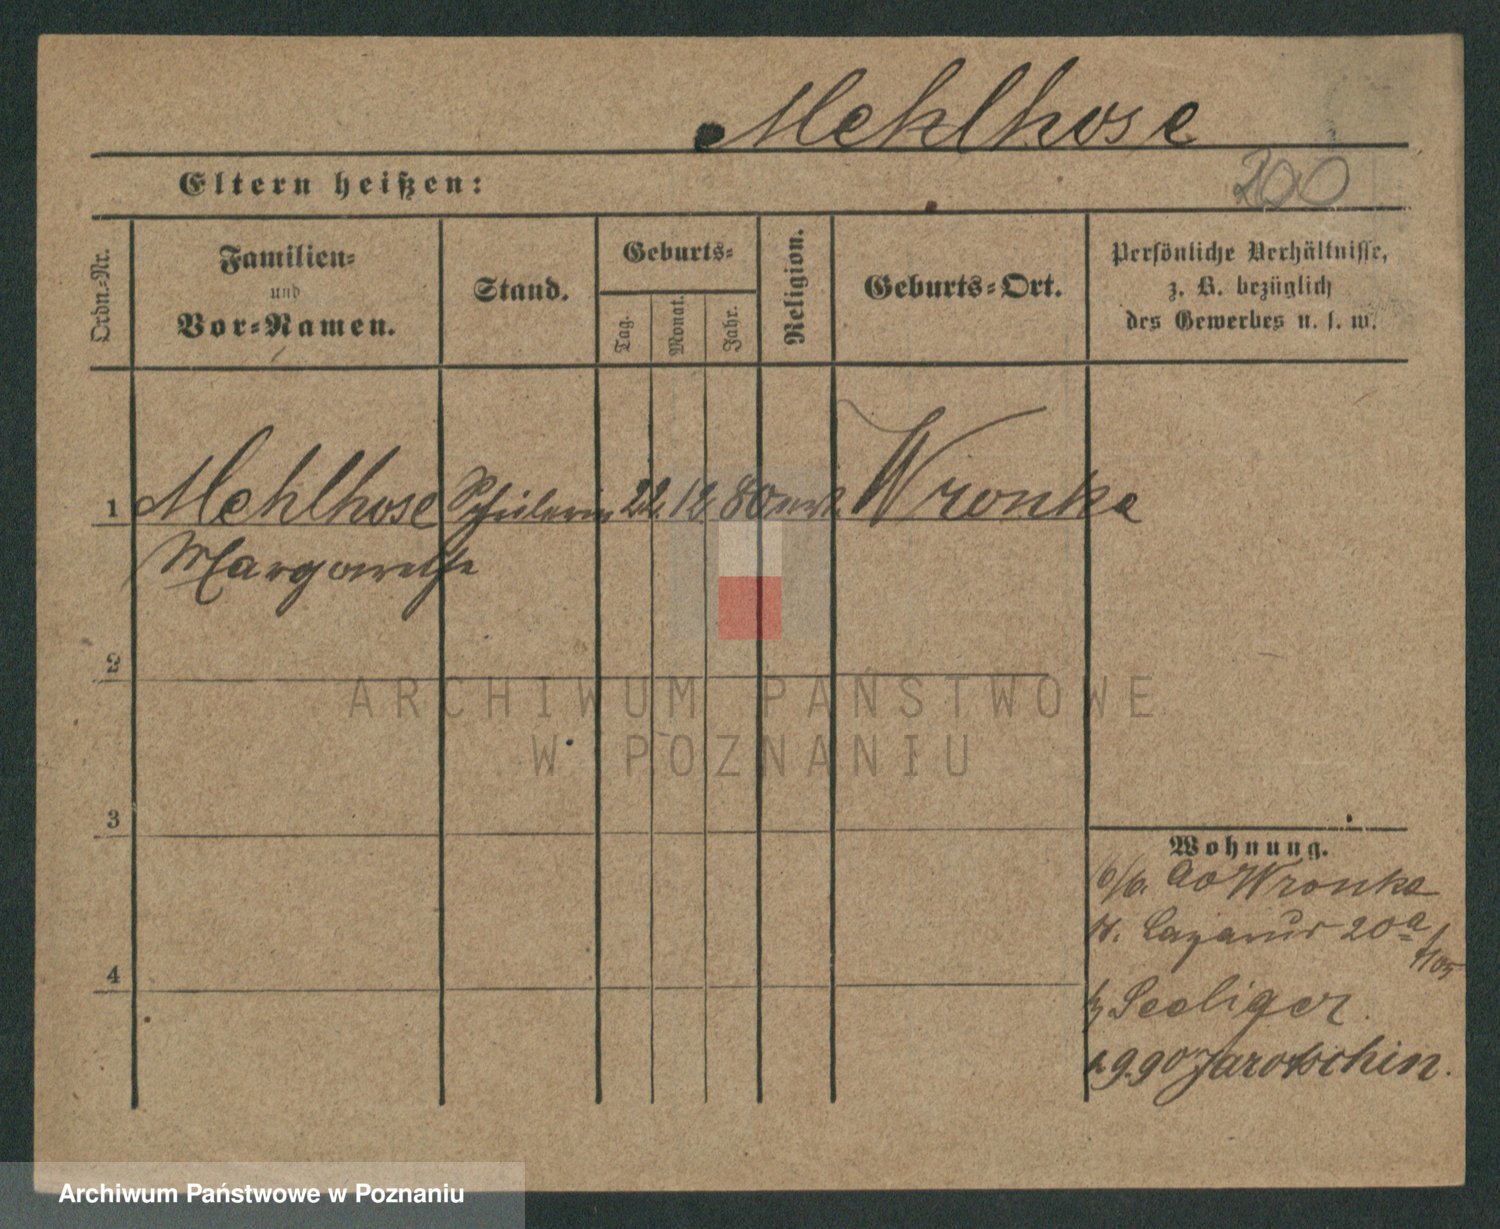 Mehlhose
Eltern heißen:
200
Ordn.-Nr.
Familien-
und
Vor-Namen.
Stand.
Geburts-
Tag.
Monat.
Jahr.
Religion.
Geburts-Ort.
Persönliche Verhältnisse,
z. B. bezüglich
des Gewerbes u. s. w.
1 Mehlhose Schülerin 22. 12. 80 Wronke
Margarethe
2
ARCHIWUM PAŃSTWOWE
W POZNANIU
3
Wohnung.
Wronke
St. Lazarus 20a
4
Seeliger.
Jarotschin.
Archiwum Państwowe w Poznaniu